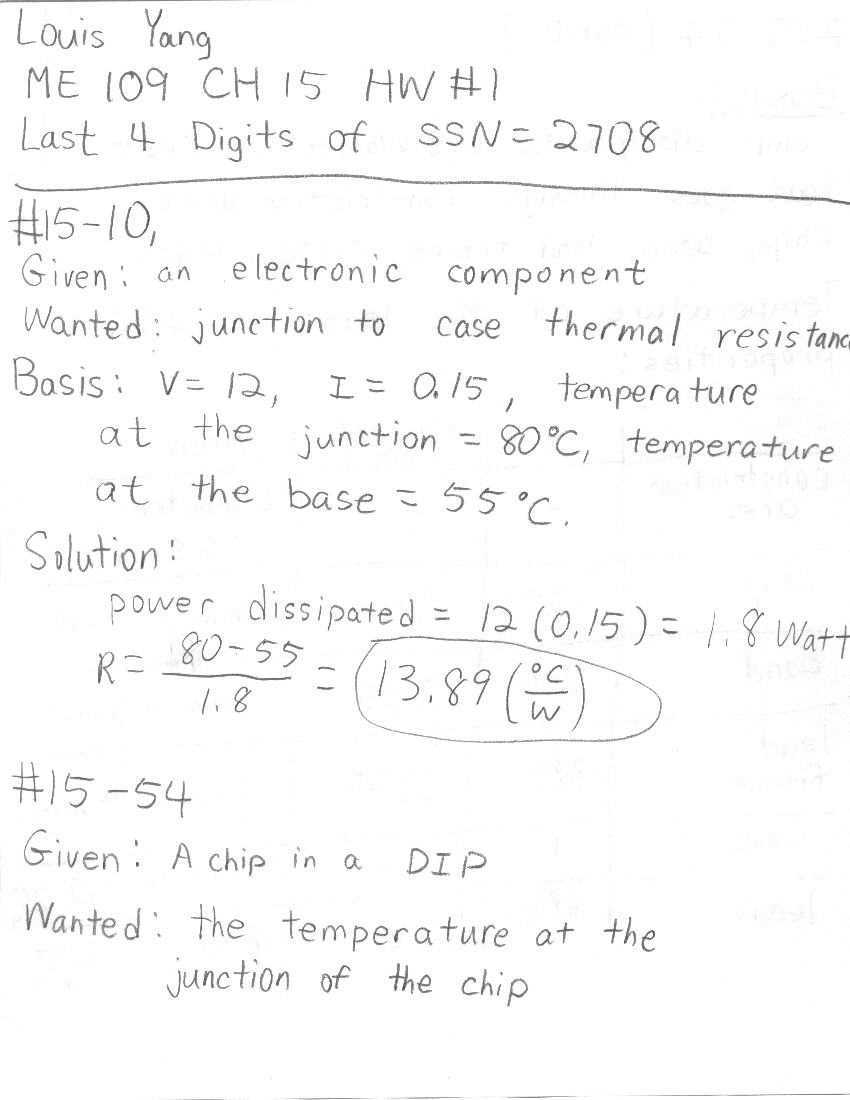 Louis Yang
ME 109 CH 15 HW #1
Last 4 Digits of SSN = 2708
#15-10,
Given: an electronic component
Wanted: junction to case thermal resistanc
Basis: V = 12, I = 0.15, temperature
at the junction = 80°C, temperature
at the base = 55°C.
Solution:
power dissipated = 12 (0.15) = 1.8 Watt
R = 80-55 / 1.8 = 13.89 (°C/W)
#15-54
Given: A chip in a DIP
Wanted: the temperature at the
junction of the chip